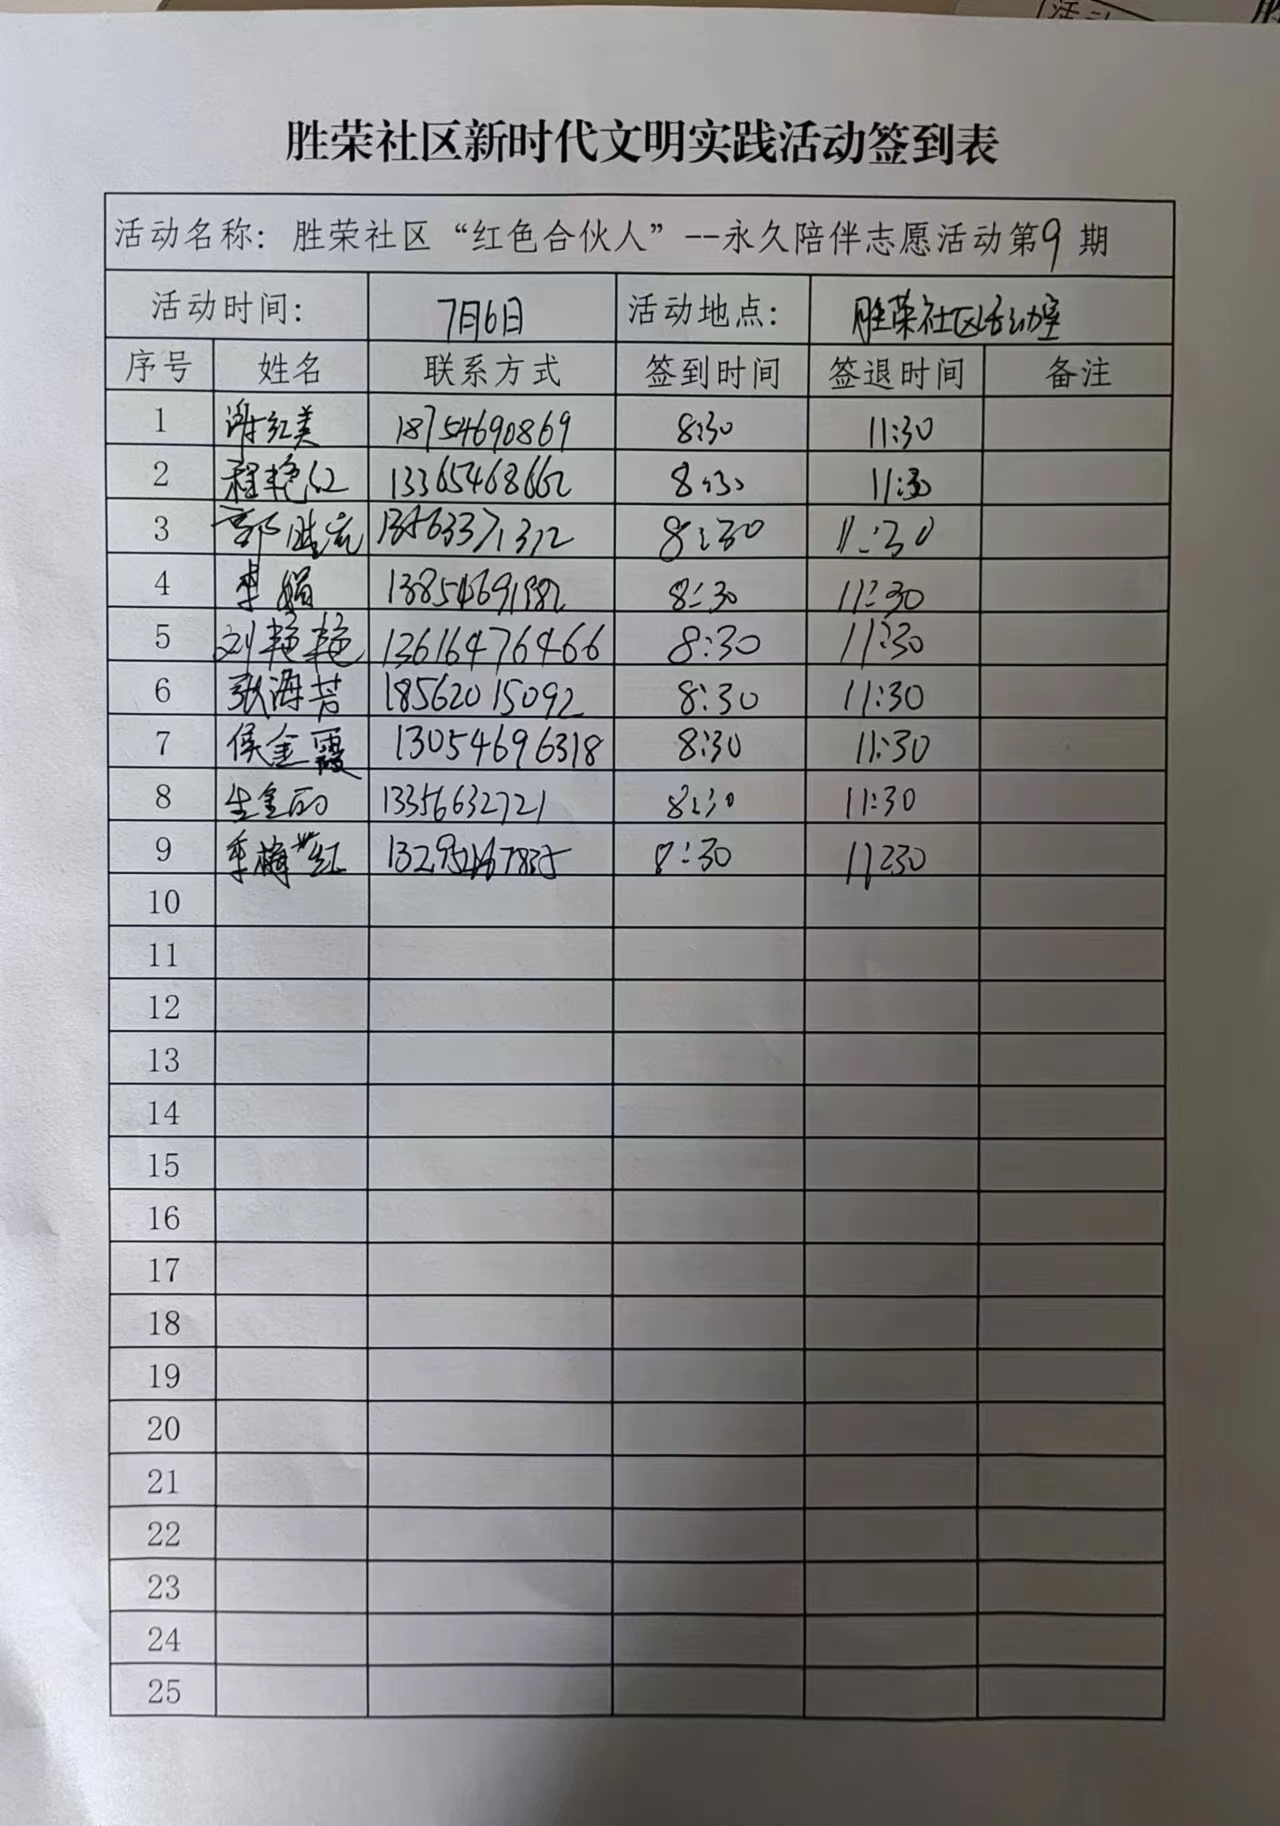 活动
胜荣社区新时代文明实践活动签到表
活动名称：胜荣社区“红色合伙人”--永久陪伴志愿活动第9期
活动时间： 7月6日 活动地点： 胜荣社区活动室
序号 姓名 联系方式 签到时间 签退时间 备注
1 谢红美 18754690869 8:30 11:30
2 程艳红 13365468662 8:30 11:30
3 郭胜 13563371312 8:30 11:30
4 李娟 8:30 11:30
5 刘艳艳 13616476466 8:30 11:30
6 张海芳 18562015092 8:30 11:30
7 侯金霞 13054696318 8:30 11:30
8 13356632721 8:30 11:30
9 8:30 11:30
10
11
12
13
14
15
16
17
18
19
20
21
22
23
24
25